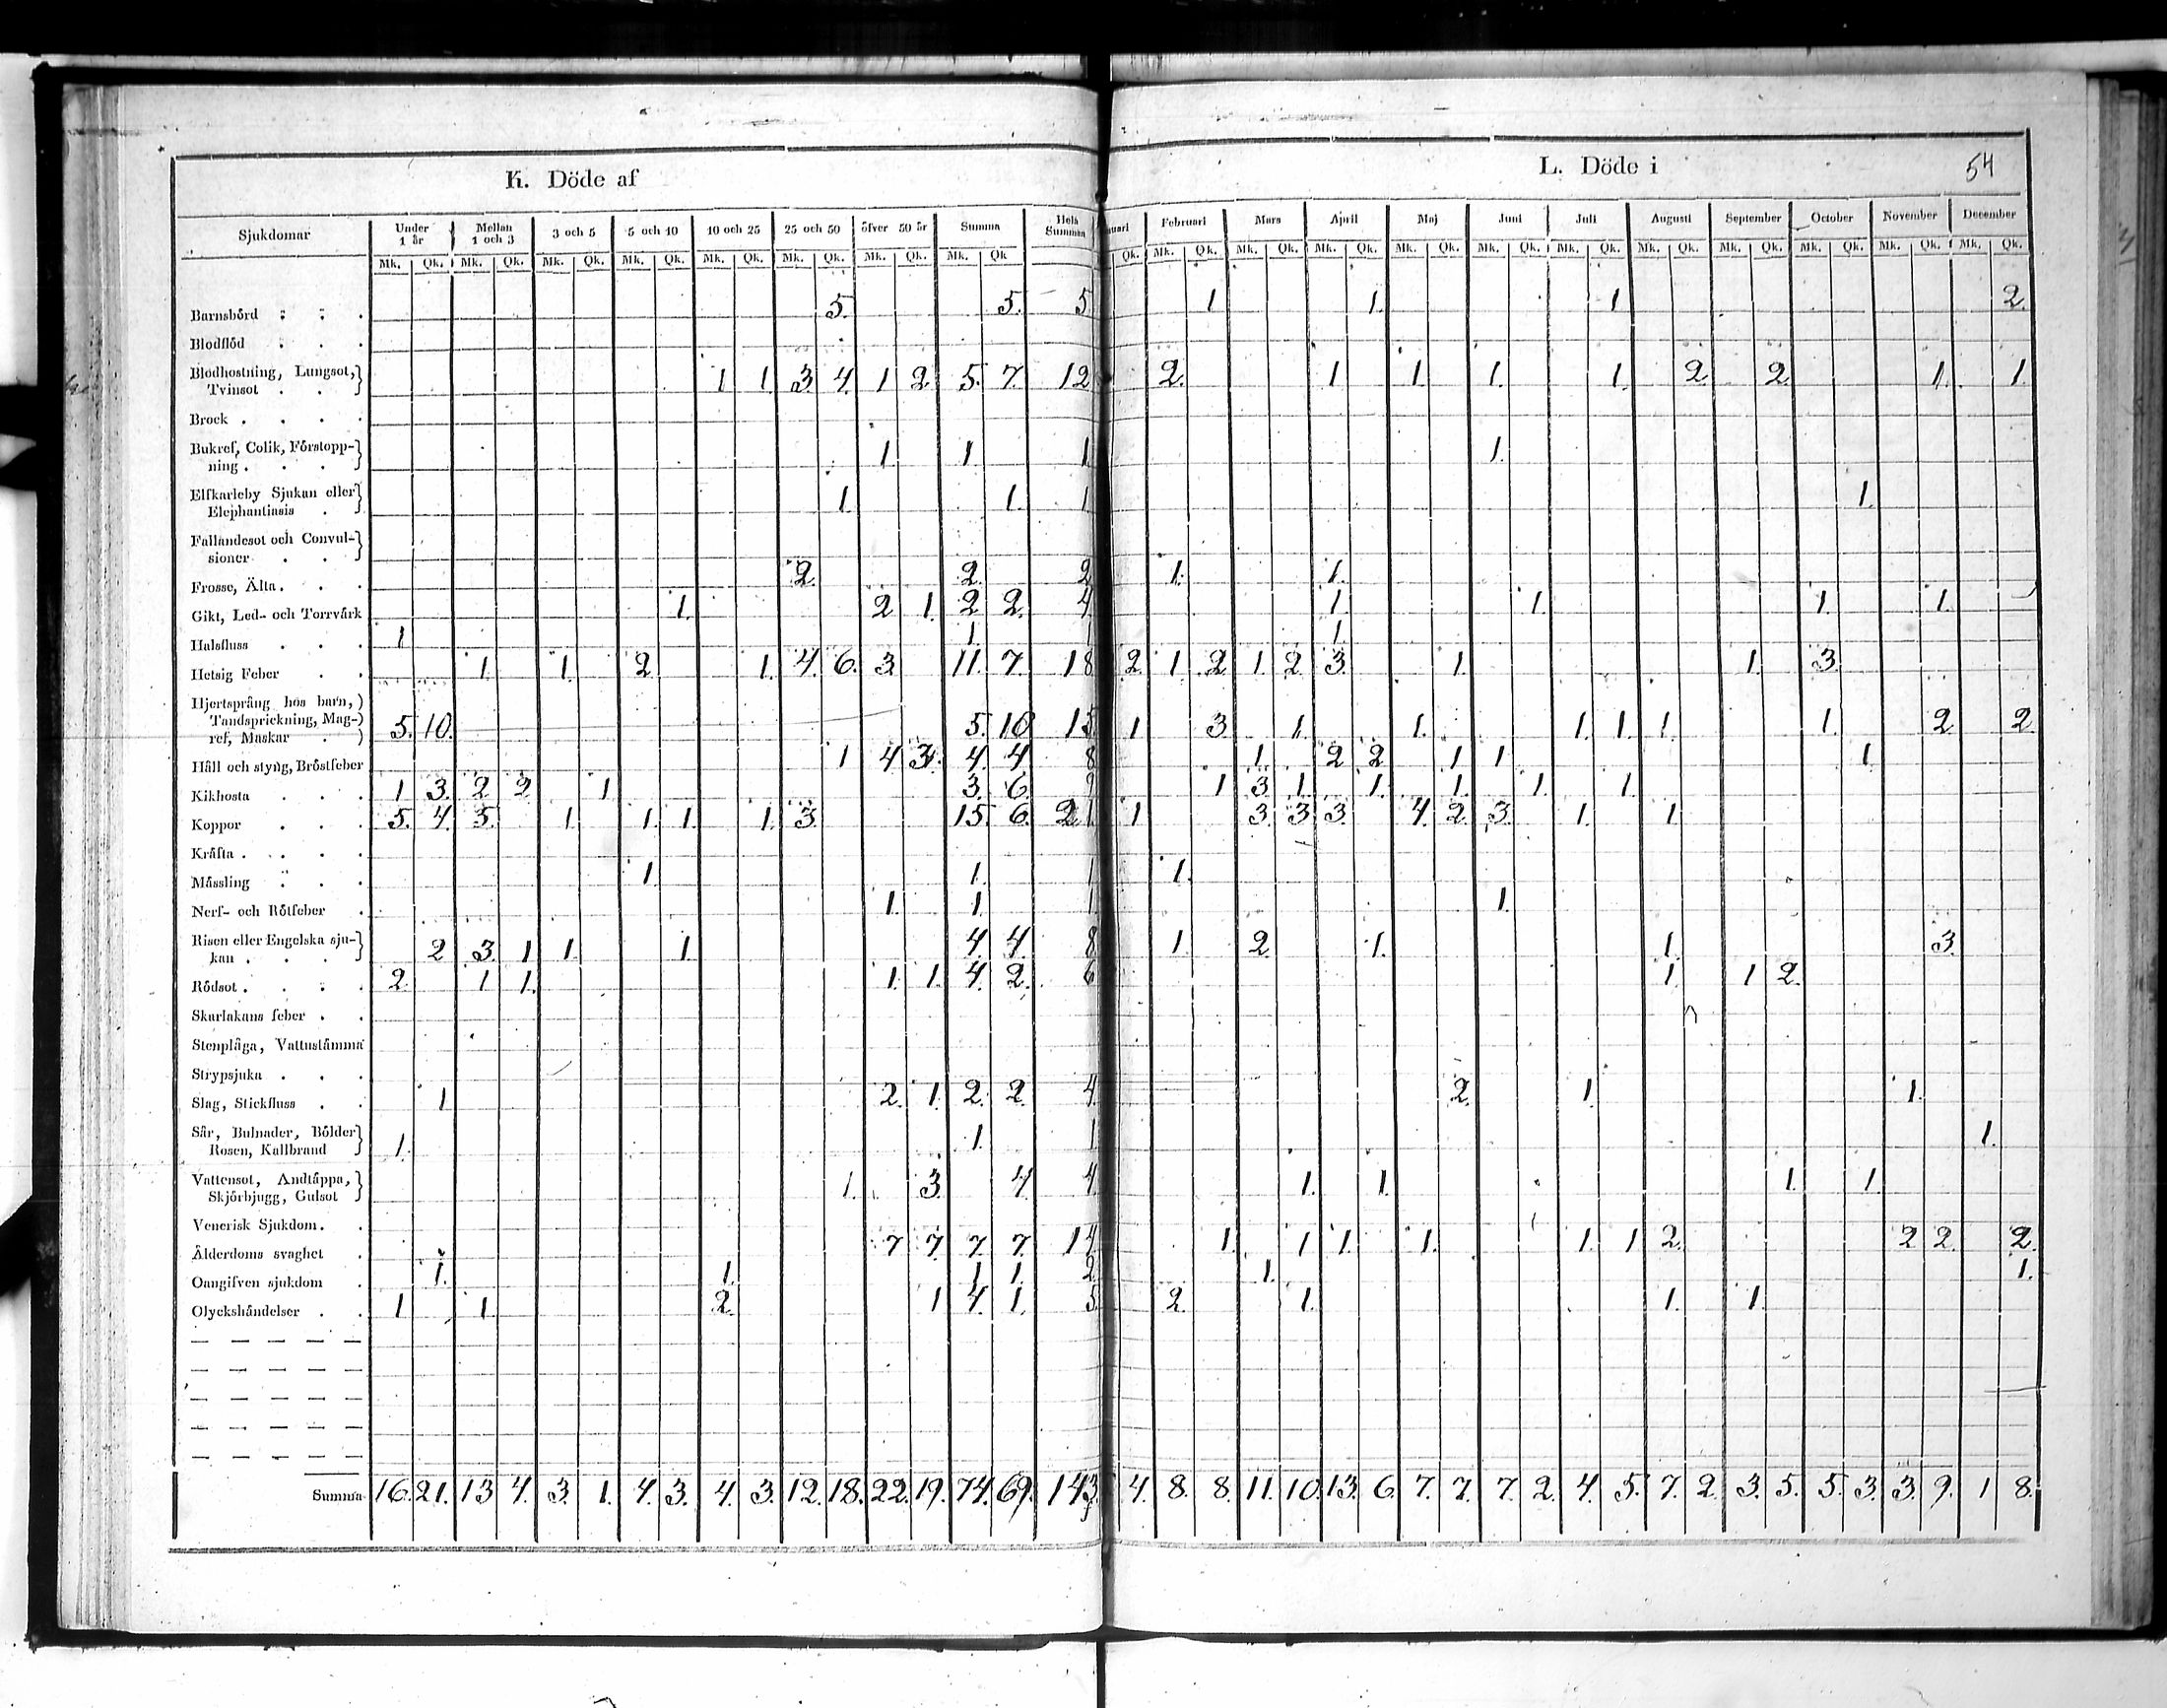 K. Döde af
L. Döde i 54
Sjukdomar Under 1 år Mellan 1 och 3 3 och 5 5 och 10 10 och 25 25 och 50 öfver 50 år Summa Hela Summan nuari Februari Mars April Maj Juni Juli Augusti September October November December
Mk. Qk. Mk. Qk. Mk. Qk. Mk. Qk. Mk. Qk. Mk. Qk. Mk. Qk. Mk. Qk Qk. Mk. Qk. Mk. Qk. Mk. Qk. Mk. Qk. Mk. Qk. Mk. Qk. Mk. Qk. Mk. Qk. Mk. Qk. Mk. Qk. Mk. Qk.
Barnsbörd 5. 5. 5 1 1. 1 2.
Blodflöd
Blodhostning, Lungsot,
Tvinsot 1 1. 3 4. 1 2. 5. 7. 12 2. 1 1. 1. 1. 2. 2. 1. 1.
Brock
Bukref, Colik, Förstopp-
ning 1 1 1 1.
Elfkarleby Sjukan eller
Elephantiasis 1. 1. 1 1.
Fallandesot och Convul-
sioner
Frosse, Älta 2. 2. 2 1. 1.
Gikt, Led- och Torrvärk 1. 2 1. 2 2. 4 1. 1. 1. 1.
Halsfluss 1 1. 1 1.
Hetsig Feber 1. 1. 2. 1. 4. 6. 3. 11. 7. 18 2. 1. 2 1. 2 3. 1. 1. 3.
Hjertsprång hos barn,
Tandsprickning, Mag-
ref, Maskar 5. 10. 5. 10 15 1 3 1. 1. 1. 1. 1. 1. 2. 2.
Håll och styng, Bröstfeber 1 4 3. 4. 4 8 1. 2 2. 1 1 1.
Kikhosta 1 3. 2 2. 1 3. 6. 9 1 3 1. 1. 1. 1. 1.
Koppor 5. 4. 5. 1. 1. 1. 1. 3. 15. 6. 21 1 3. 3 3. 4. 2. 3. 1. 1
Kräfta
Mässling 1. 1. 1 1.
Nerf- och Rötfeber 1. 1. 1 1.
Risen eller Engelska sju-
kan 2 3. 1 1. 1. 4. 4. 8 1. 2. 1. 1. 3.
Rödsot 2. 1 1. 1. 1. 4. 2. 6 1. 1 2.
Skarlakans feber
Stenplåga, Vattustämma
Strypsjuka
Slag, Stickfluss 1 2. 1. 2. 2. 4 2. 1. 1.
Sår, Bulnader, Bölder
Rosen, Kallbrand 1. 1. 1 1.
Vattensot, Andtäppa,
Skjörbjugg, Gulsot 1. 3. 4. 4. 1. 1. 1. 1.
Venerisk Sjukdom
Ålderdoms svaghet 7 7. 7. 7. 14 1. 1 1. 1. 1. 1 2. 2 2. 2.
Oangifven sjukdom 1. 1. 1 1. 2 1. 1.
Olyckshändelser 1 1. 2. 1 4. 1. 5 2. 1. 1. 1.
Summa 16. 21. 13 4. 3. 1. 4. 3. 4. 3. 12. 18. 22. 19. 74. 69. 143 4. 8. 8. 11. 10. 13. 6. 7. 7. 7. 2. 4. 5. 7. 2. 3. 5. 5. 3. 3. 9. 1 8.